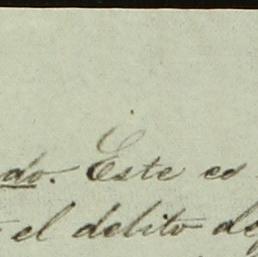 do. Este es
el delito de